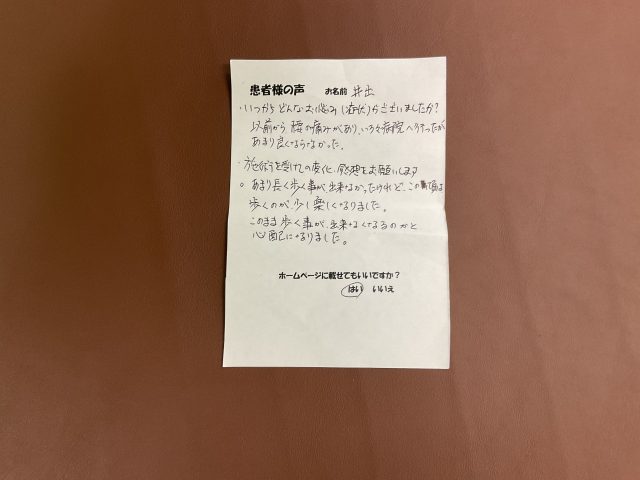 患者様の声 お名前 井出
・いつからどんなお悩み(症状)がございましたか?
以前から 腰の痛みがあり、いろいろ病院へ行ったが
あまり良くならなかった。
・施術を受けての変化、感想をお願いします
。あまり長く歩く事が、出来なかったけれど、この
歩くのが、少し楽しくなりました。
このまま歩く事が、出来なくなるのかと
心配になりました。
ホームページに載せてもいいですか?
はい いいえ